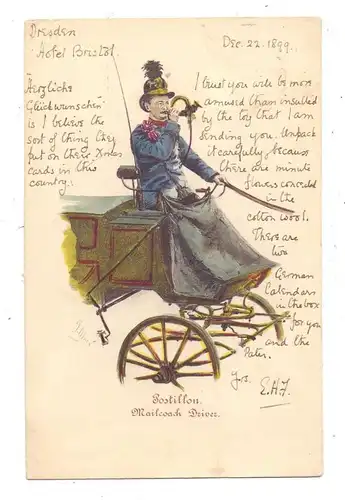 Dresden
Hotel Bristol.
Dec. 22. 1899.
Herzliche
Glückwunschen
is I believe the
sort of thing they
put on their Xmas
cards in this
country.
I trust you will be more
amused than insulted
by the toy that I am
sending you. Unpack
it carefully because
there are minute
flowers concealed
in the
cotton wool.
There are
two
German
Calendars
in the box
for you
and the
Pater.
Yrs.
E.H.F.
Postillon.
Mailcoach Driver.